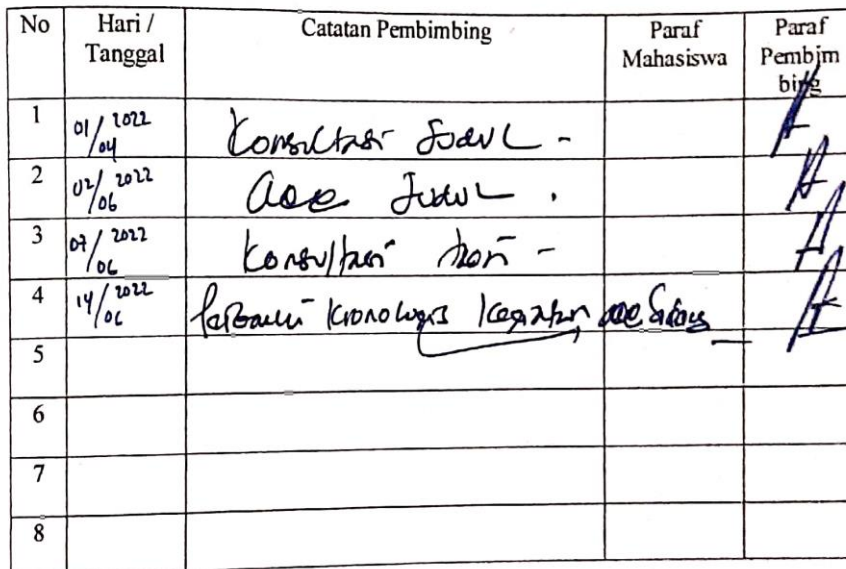 No Hari / Tanggal Catatan Pembimbing Paraf Mahasiswa Paraf Pembimbing
1 01/04 2022 Konsultasi Judul -
2 02/06 2022 acc Judul .
3 07/06 2022 Konsultasi -
4 14/06 2022 Perbaiki Kronologis Kegiatan, acc Sidang
5
6
7
8